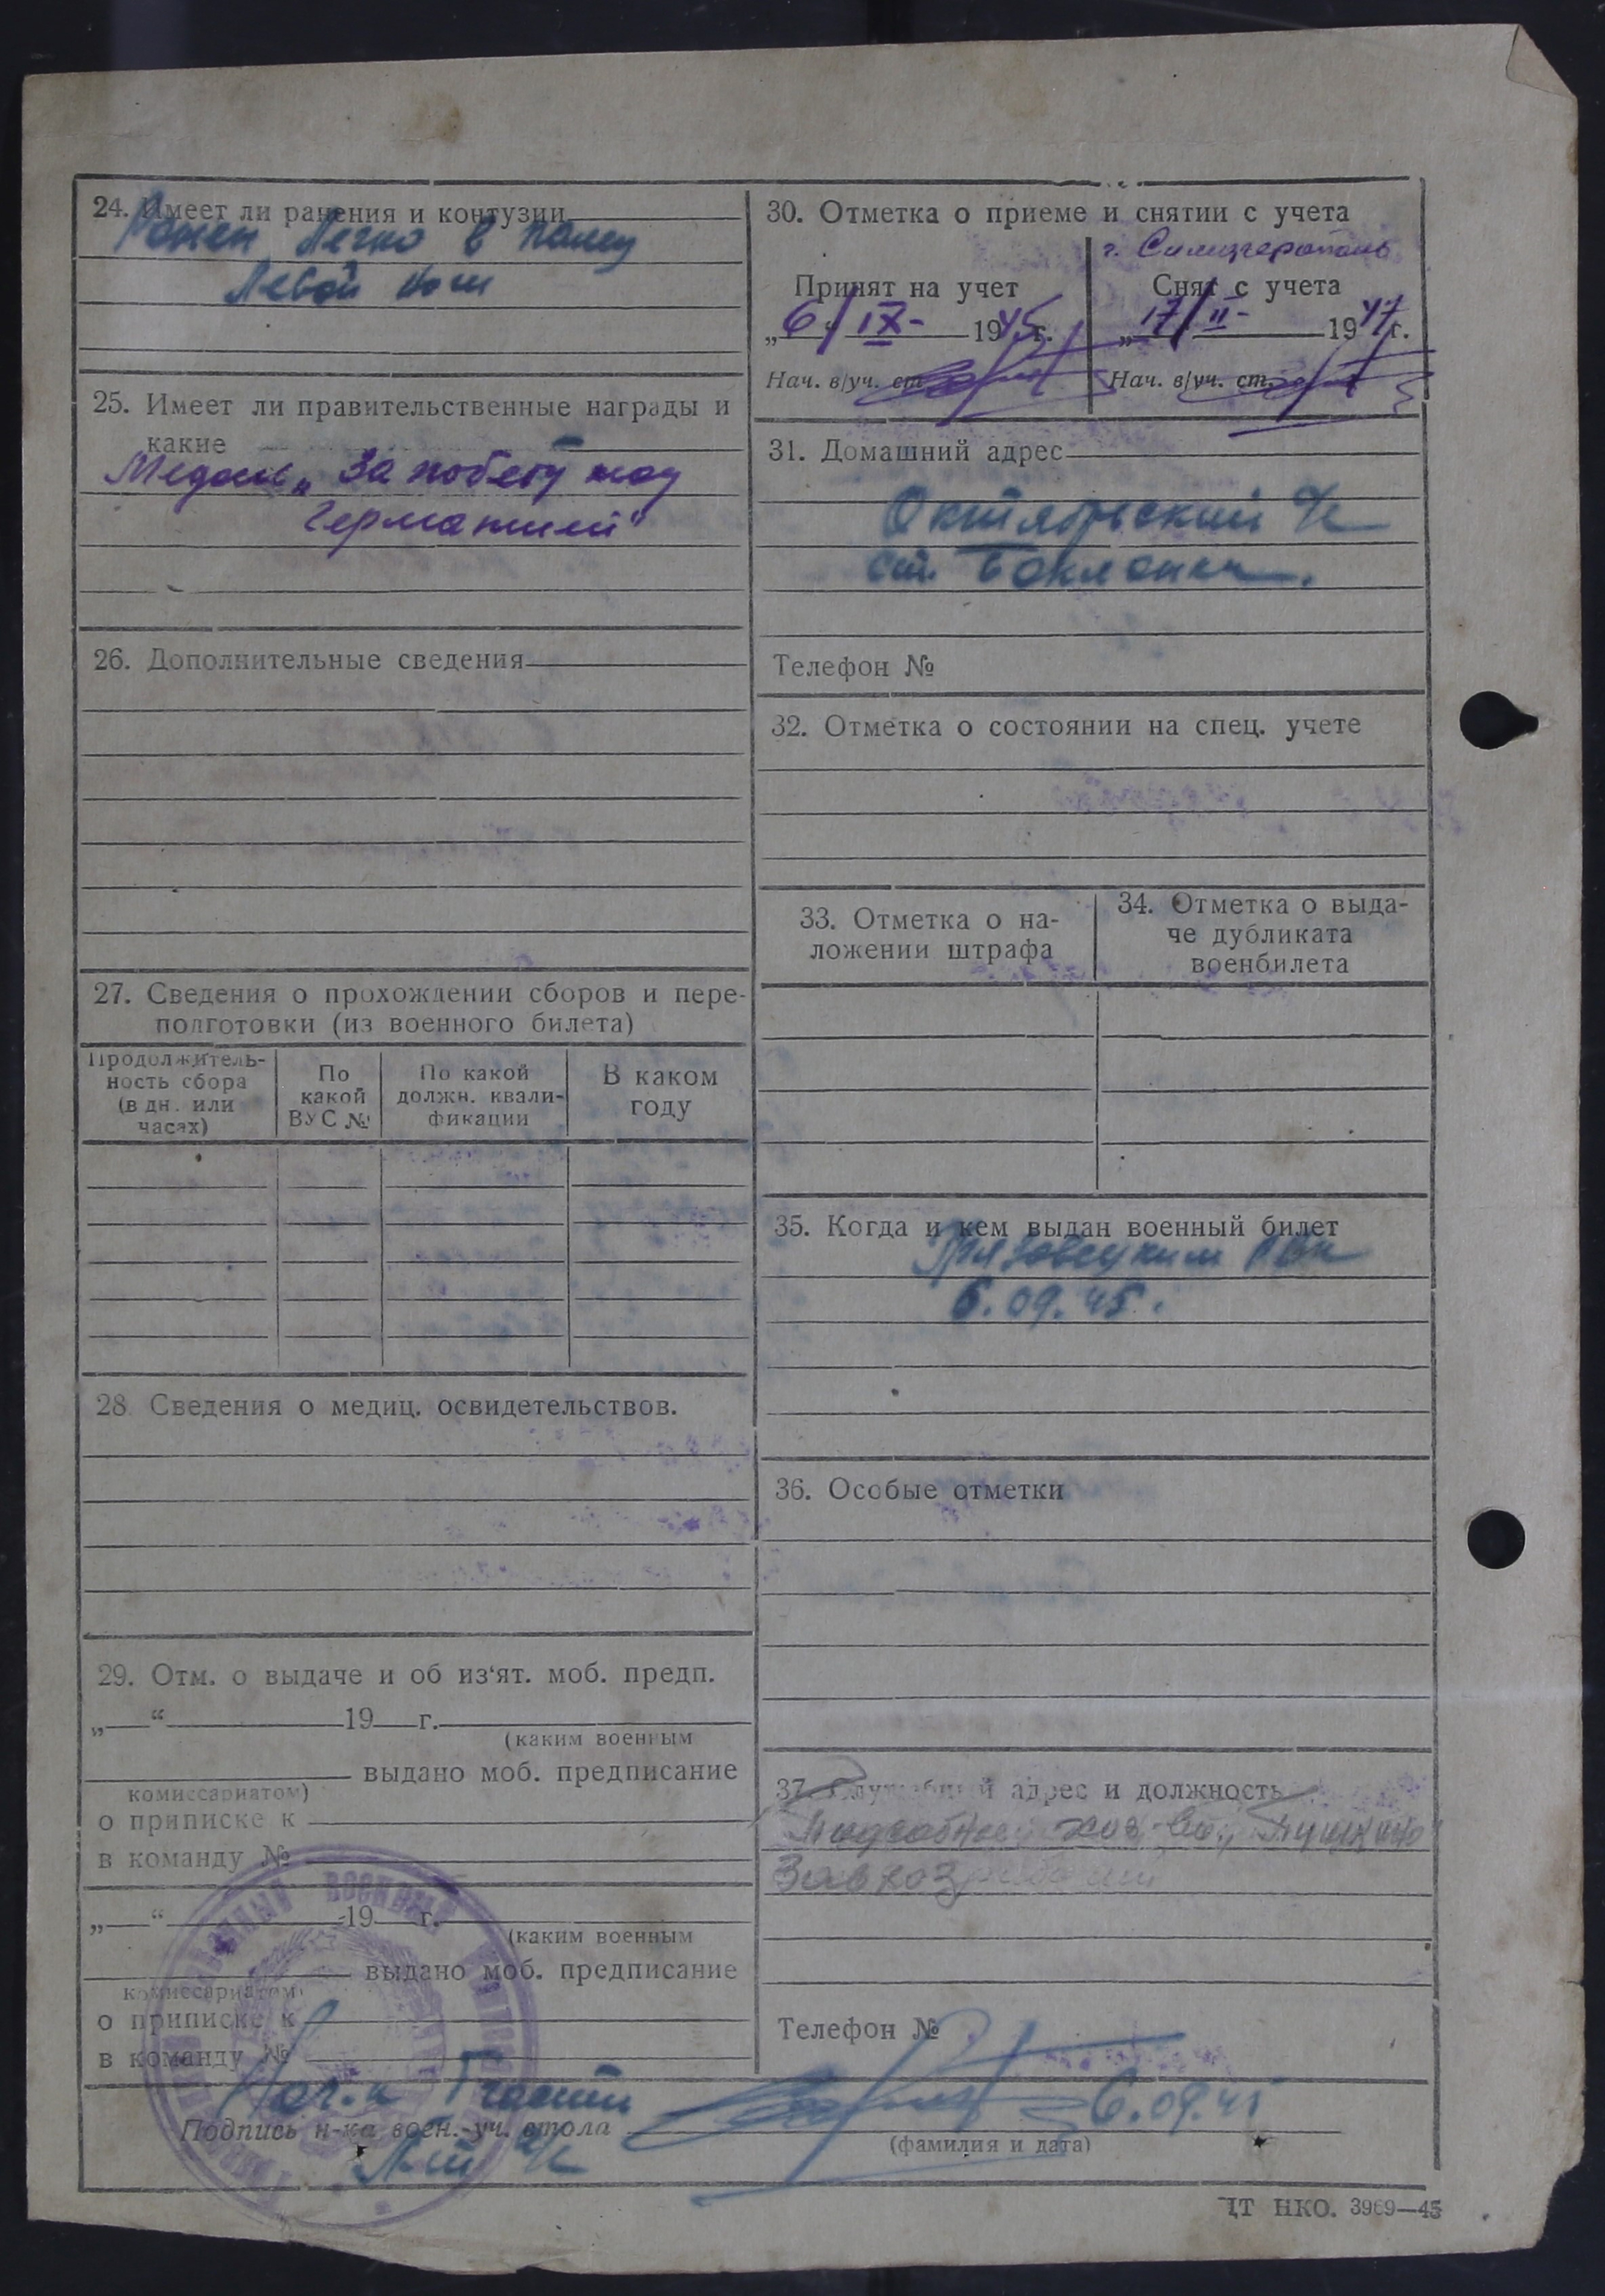 24. Имеет ли ранения и контузии
Ранен легко в палец
левой ноги
25. Имеет ли правительственные награды и
какие
Медаль „За победу над
Германией“
26. Дополнительные сведения
27. Сведения о прохождении сборов и пере-
подготовки (из военного билета)
Продолжитель-
ность сбора
(в дн. или
часах)
По
какой
ВУС №
По какой
должн. квали-
фикации
В каком
году
28. Сведения о медиц. освидетельствов.
29. Отм. о выдаче и об из‘ят. моб. предп.
„ “ 19 г.
(каким военным
выдано моб. предписание
комиссариатом)
о приписке к
в команду №
„ “ 19 г.
(каким военным
выдано моб. предписание
комиссариатом)
о приписке к
в команду №
30. Отметка о приеме и снятии с учета
г. Симферополь
Принят на учет
„6“ IX- 1945г.
Нач. в/уч. ст.
Снят с учета
„17 II- 1947г.
Нач. в/уч. ст.
31. Домашний адрес
Октябрьский с/с
ст. Бакланка.
Телефон №
32. Отметка о состоянии на спец. учете
33. Отметка о на-
ложении штрафа
34. Отметка о выда-
че дубликата
военбилета
35. Когда и кем выдан военный билет
Грязовецким РВК
6.09.45.
36. Особые отметки
37. Служебный адрес и должность
Подсобное хоз-во
Телефон №
Нач.к части
Подпись н-ка воен.-уч. стола
6.09.45
(фамилия и дата)
ЦТ НКО. 3969—45